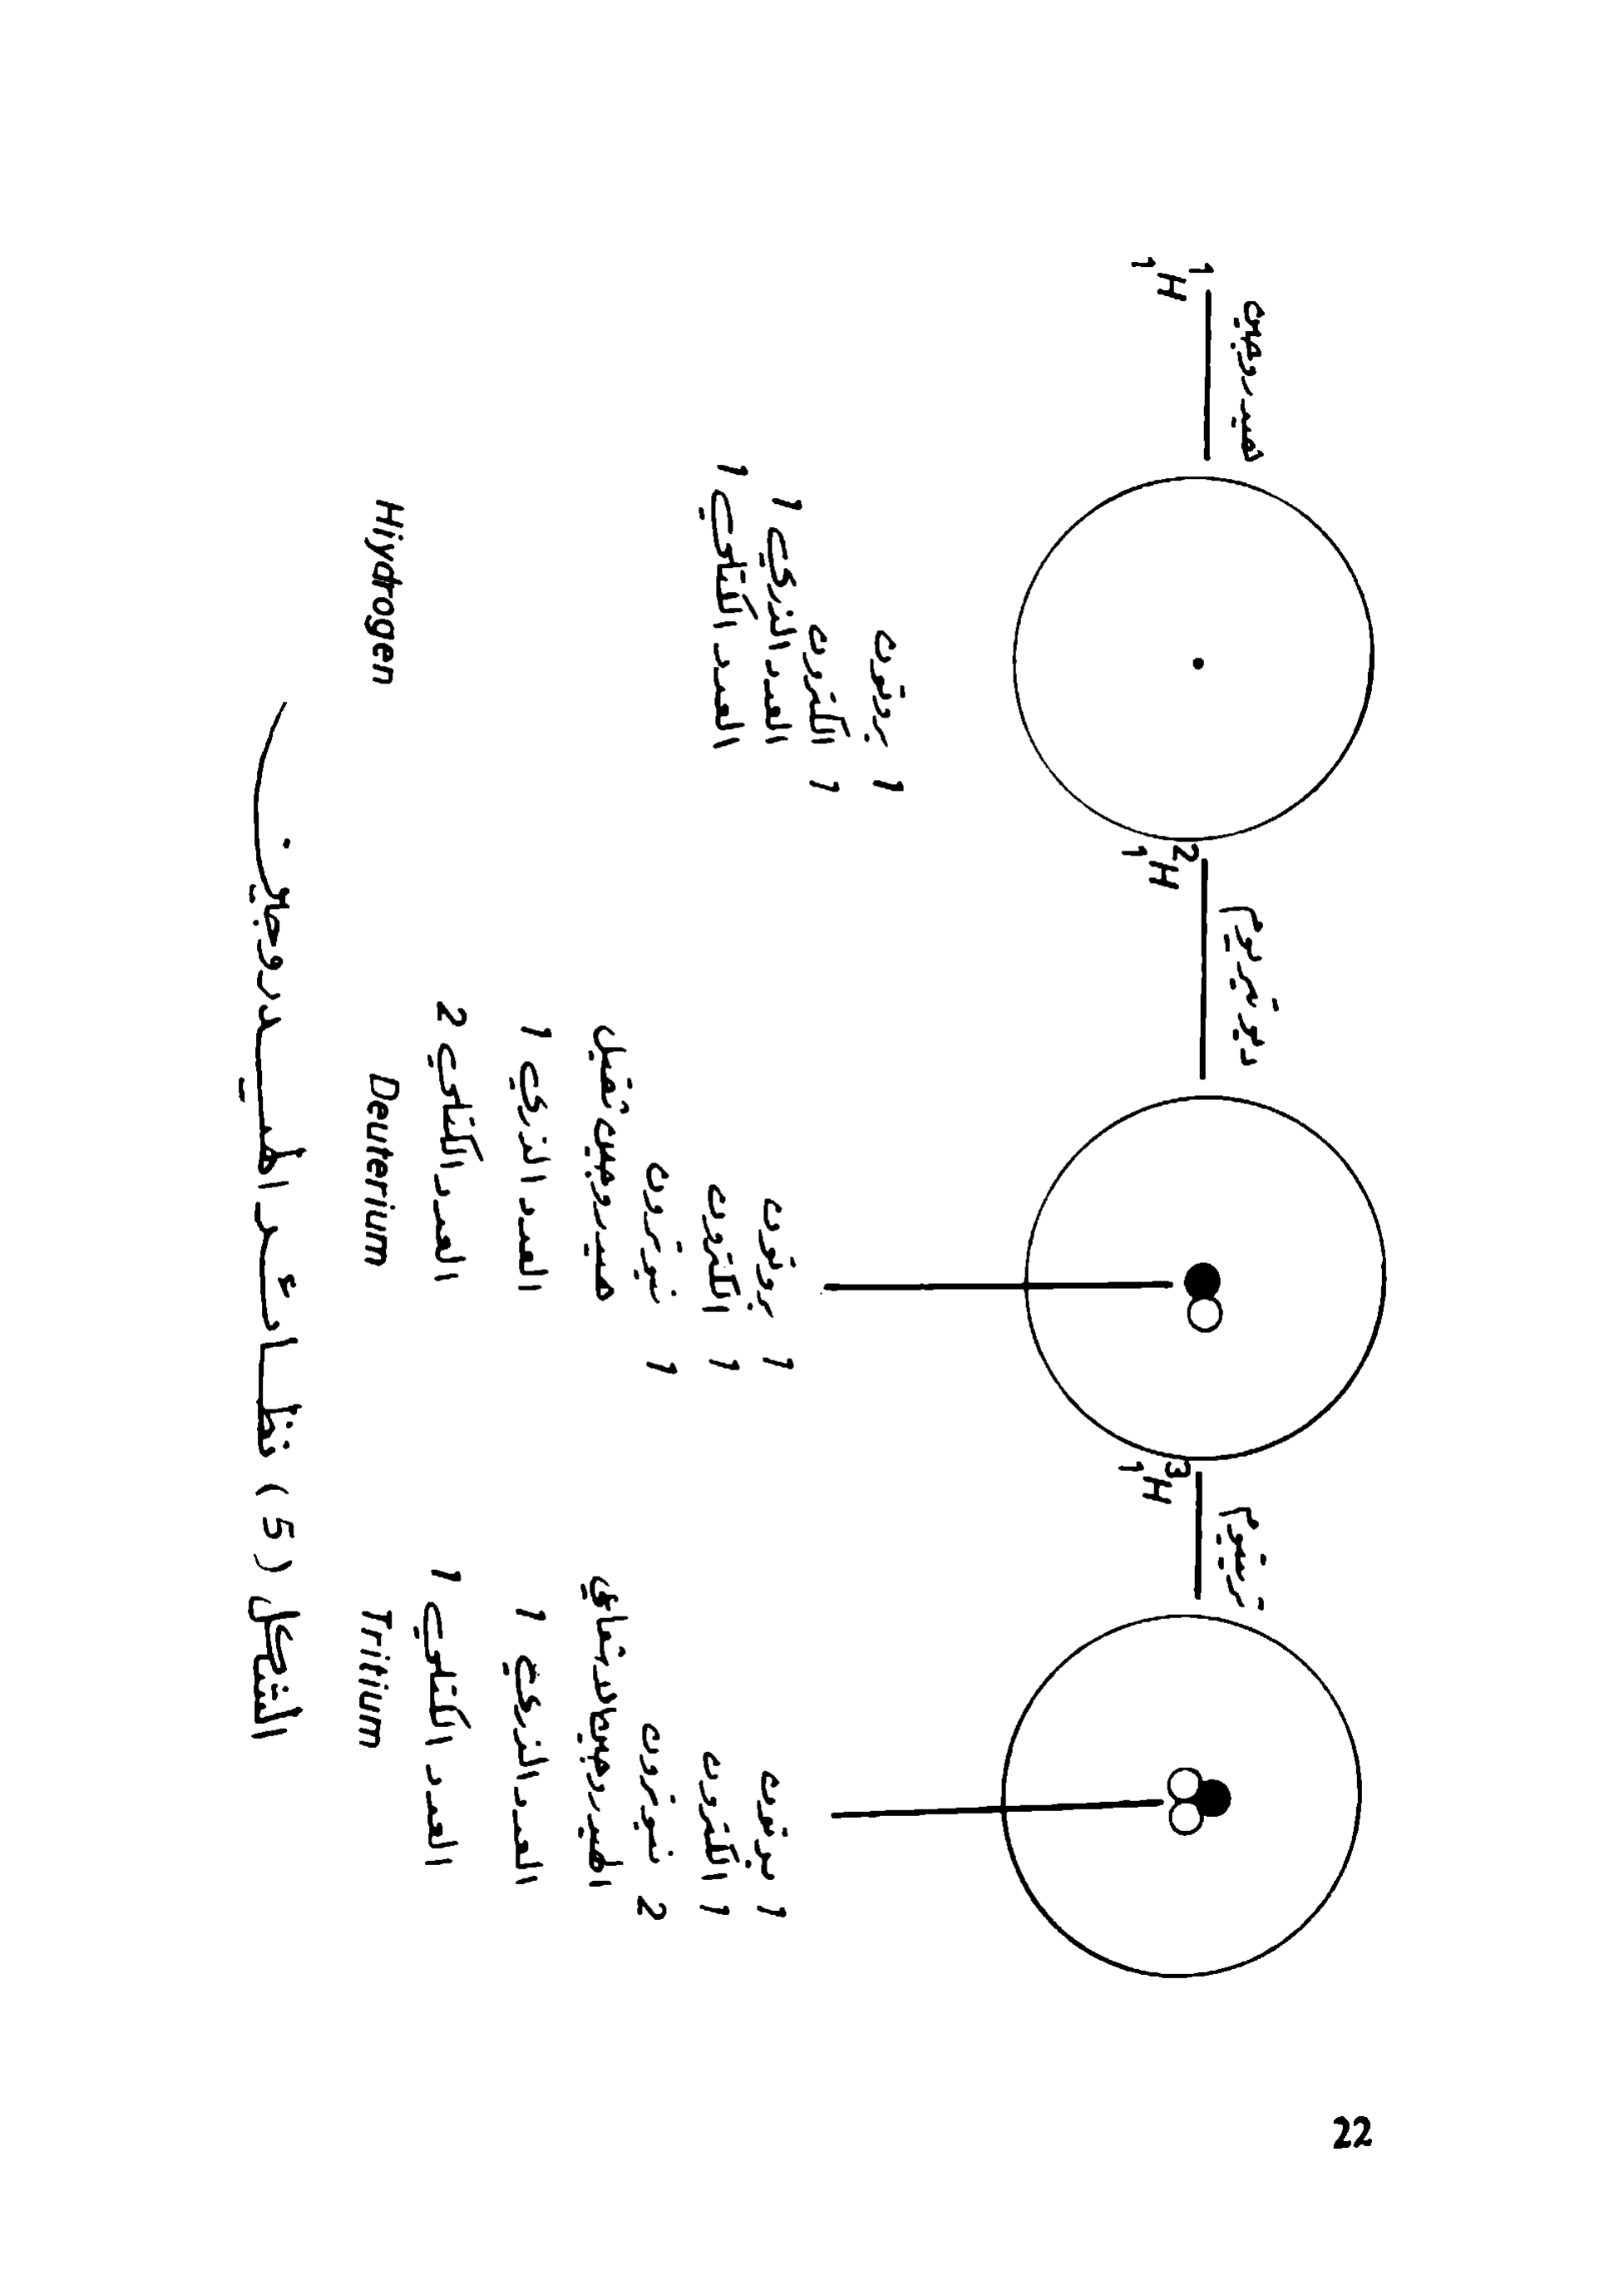 هيدروجين
¹₁H
1 بروتون
1 الكترون
العدد الذري 1
العدد الكتلي 1
Hiydrogen
ديوتيريوم
²₁H
1 بروتون
1 الكترون
1 نيوترون
هيدروجين ثقيل
العدد الذري 1
العدد الكتلي 2
Deuterium
تريتيوم
³₁H
1 بروتون
1 الكترون
2 نيوترون
العدد الذري 1
العدد الكتلي 1
Tritium
الشكل (5) نظائر الهيدروجين
22